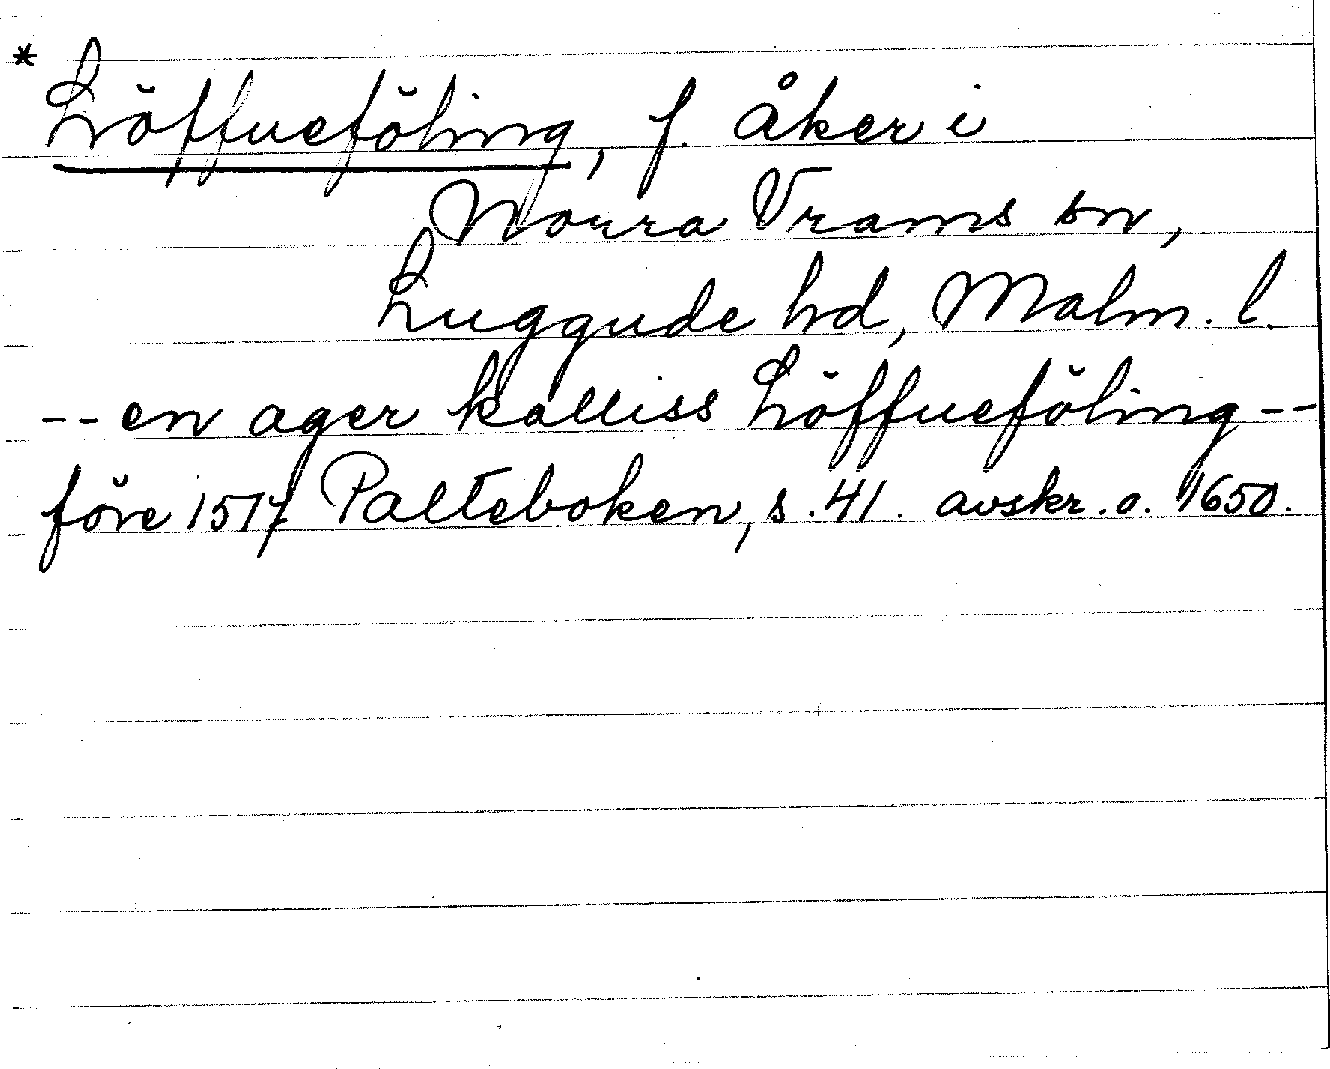 * Löffueföling, f. åker i
Norra Vrams sn,
Luggude hd, Malm. l.
-- en ager kalliss Löffueföling --
före 1517 Palteboken, s. 41. avskr. o. 1650.